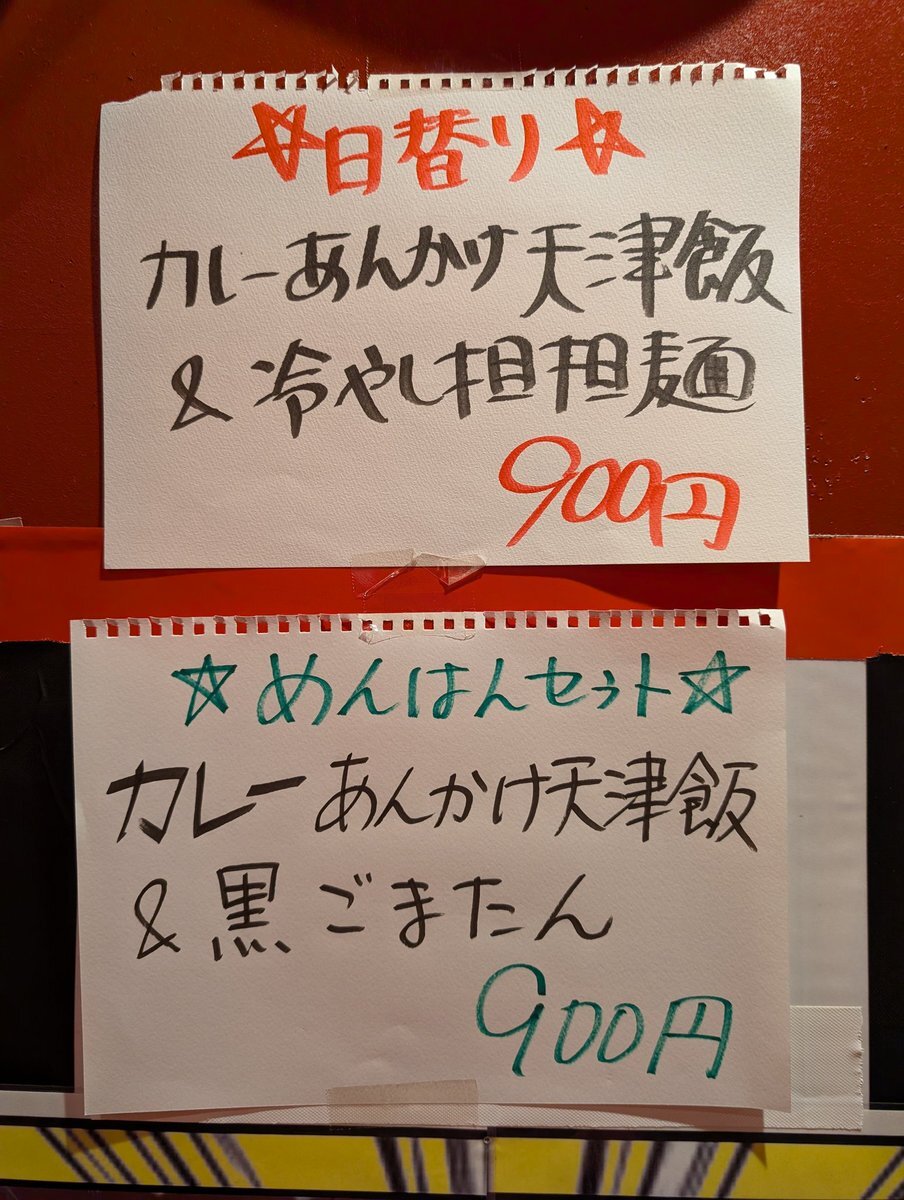 ☆日替り☆
カレーあんかけ天津飯
&冷やし担担麺
900円
☆めんはんセット☆
カレーあんかけ天津飯
&黒ごまたん
900円